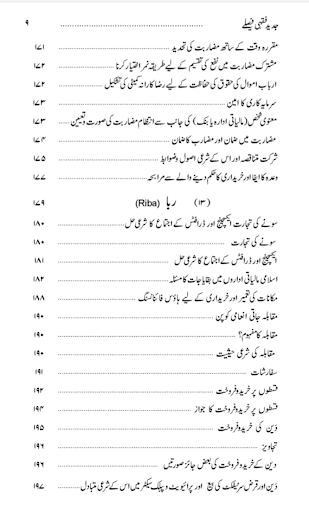 جدید فقہی فیصلے ۹
مقررہ وقت کے ساتھ مضاربت کی تحدید ۱۷۱
مشترک مضاربت میں نفع کی تقسیم کے لیے طریقہ نمر اختیار کرنا ۱۷۲
ارباب اموال کی حقوق کی حفاظت کے لیے رضا کارانہ کمیٹی کی تشکیل ۱۷۲
سرمایہ کاری کا امین ۱۷۳
معنوی شخص (مالیاتی ادارہ یا بنک) کی جانب سے انتظام مضاربت کی صورت و تعیین ۱۷۳
مضاربت میں ضمان اور مضارب کا ضمان ۱۷۴
شرکت متناقصہ اور اس کے شرعی اصول و ضوابط ۱۷۵
وعدہ کا ایفا اور خریداری کا حکم دینے والے سے مرابحہ ۱۷۷
(۱۳) ربا (Riba) ۱۷۹
سونے کی تجارت اور ایکسچینج اور ڈرافٹس کے اجتماع کا شرعی حل ۱۸۰
سونے کی تجارت ۱۸۰
ایکسچینج اور ڈرافٹس کے اجتماع کا شرعی حل ۱۸۱
اسلامی مالیاتی اداروں میں بقایاجات کا مسئلہ ۱۸۲
مکانات کی تعمیر اور خریداری کے لیے ہاؤس فائنانسنگ ۱۸۸
مقابلہ جاتی انعامی کوپن ۱۹۰
مقابلہ کا مفہوم؟ ۱۹۰
مقابلہ کی شرعی حیثیت ۱۹۰
سفارشات ۱۹۱
قسطوں پر خرید و فروخت ۱۹۲
قسطوں پر خرید و فروخت کا جواز ۱۹۴
دَین کی خرید و فروخت ۱۹۵
تجاویز ۱۹۶
دین کے خرید و فروخت کی بعض جائز صورتیں ۱۹۶
دَین اور قرض سرٹیفکٹ کی بیع اور پرائیویٹ و پبلک سیکٹر میں اس کے شرعی متبادل ۱۹۷